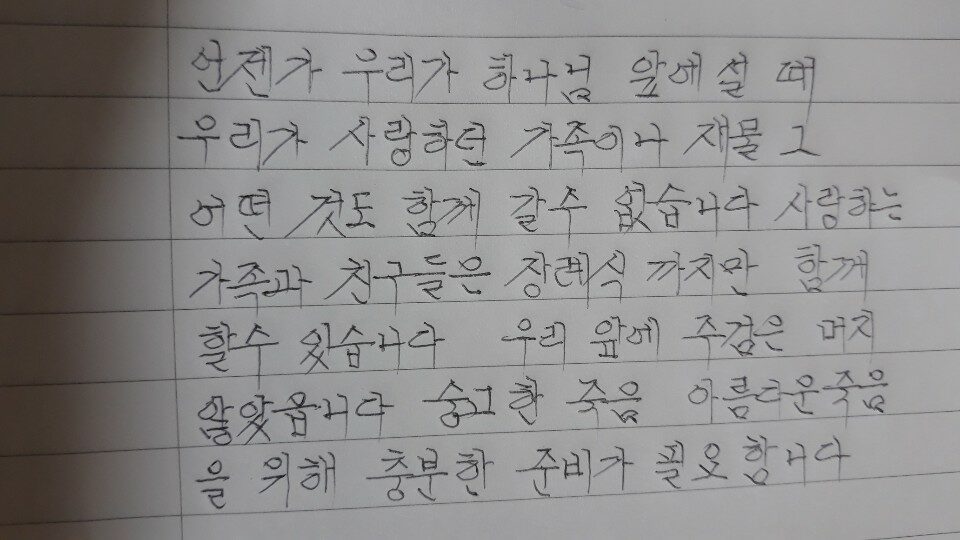 언젠가 우리가 하나님 앞에설 때
우리가 사랑하던 가족이나 재물 그
어떤 것도 함께 갈수 없습니다 사랑하는
가족과 친구들은 장례식 까지만 함께
할수 있습니다 우리 앞에 주검은 머지
않았읍니다 숭고한 죽음 아름다운죽음
을 위해 충분한 준비가 필요합니다